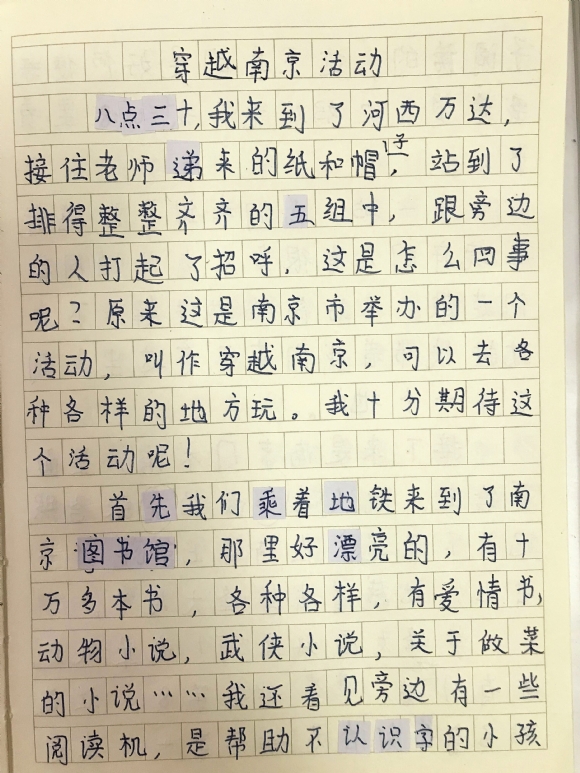 穿越南京活动
八点三十,我来到了河西万达,
接住老师递来的纸和帽子,站到了
排得整整齐齐的五组中,跟旁边
的人打起了招呼,这是怎么回事
呢?原来这是南京市举办的一个
活动,叫作穿越南京,可以去各
种各样的地方玩。我十分期待这
个活动呢!
首先我们乘着地铁来到了南
京图书馆,那里好漂亮的,有十
万多本书,各种各样,有爱情书,
动物小说,武侠小说,关于做菜
的小说……我还看见旁边有一些
阅读机,是帮助不认识字的小孩